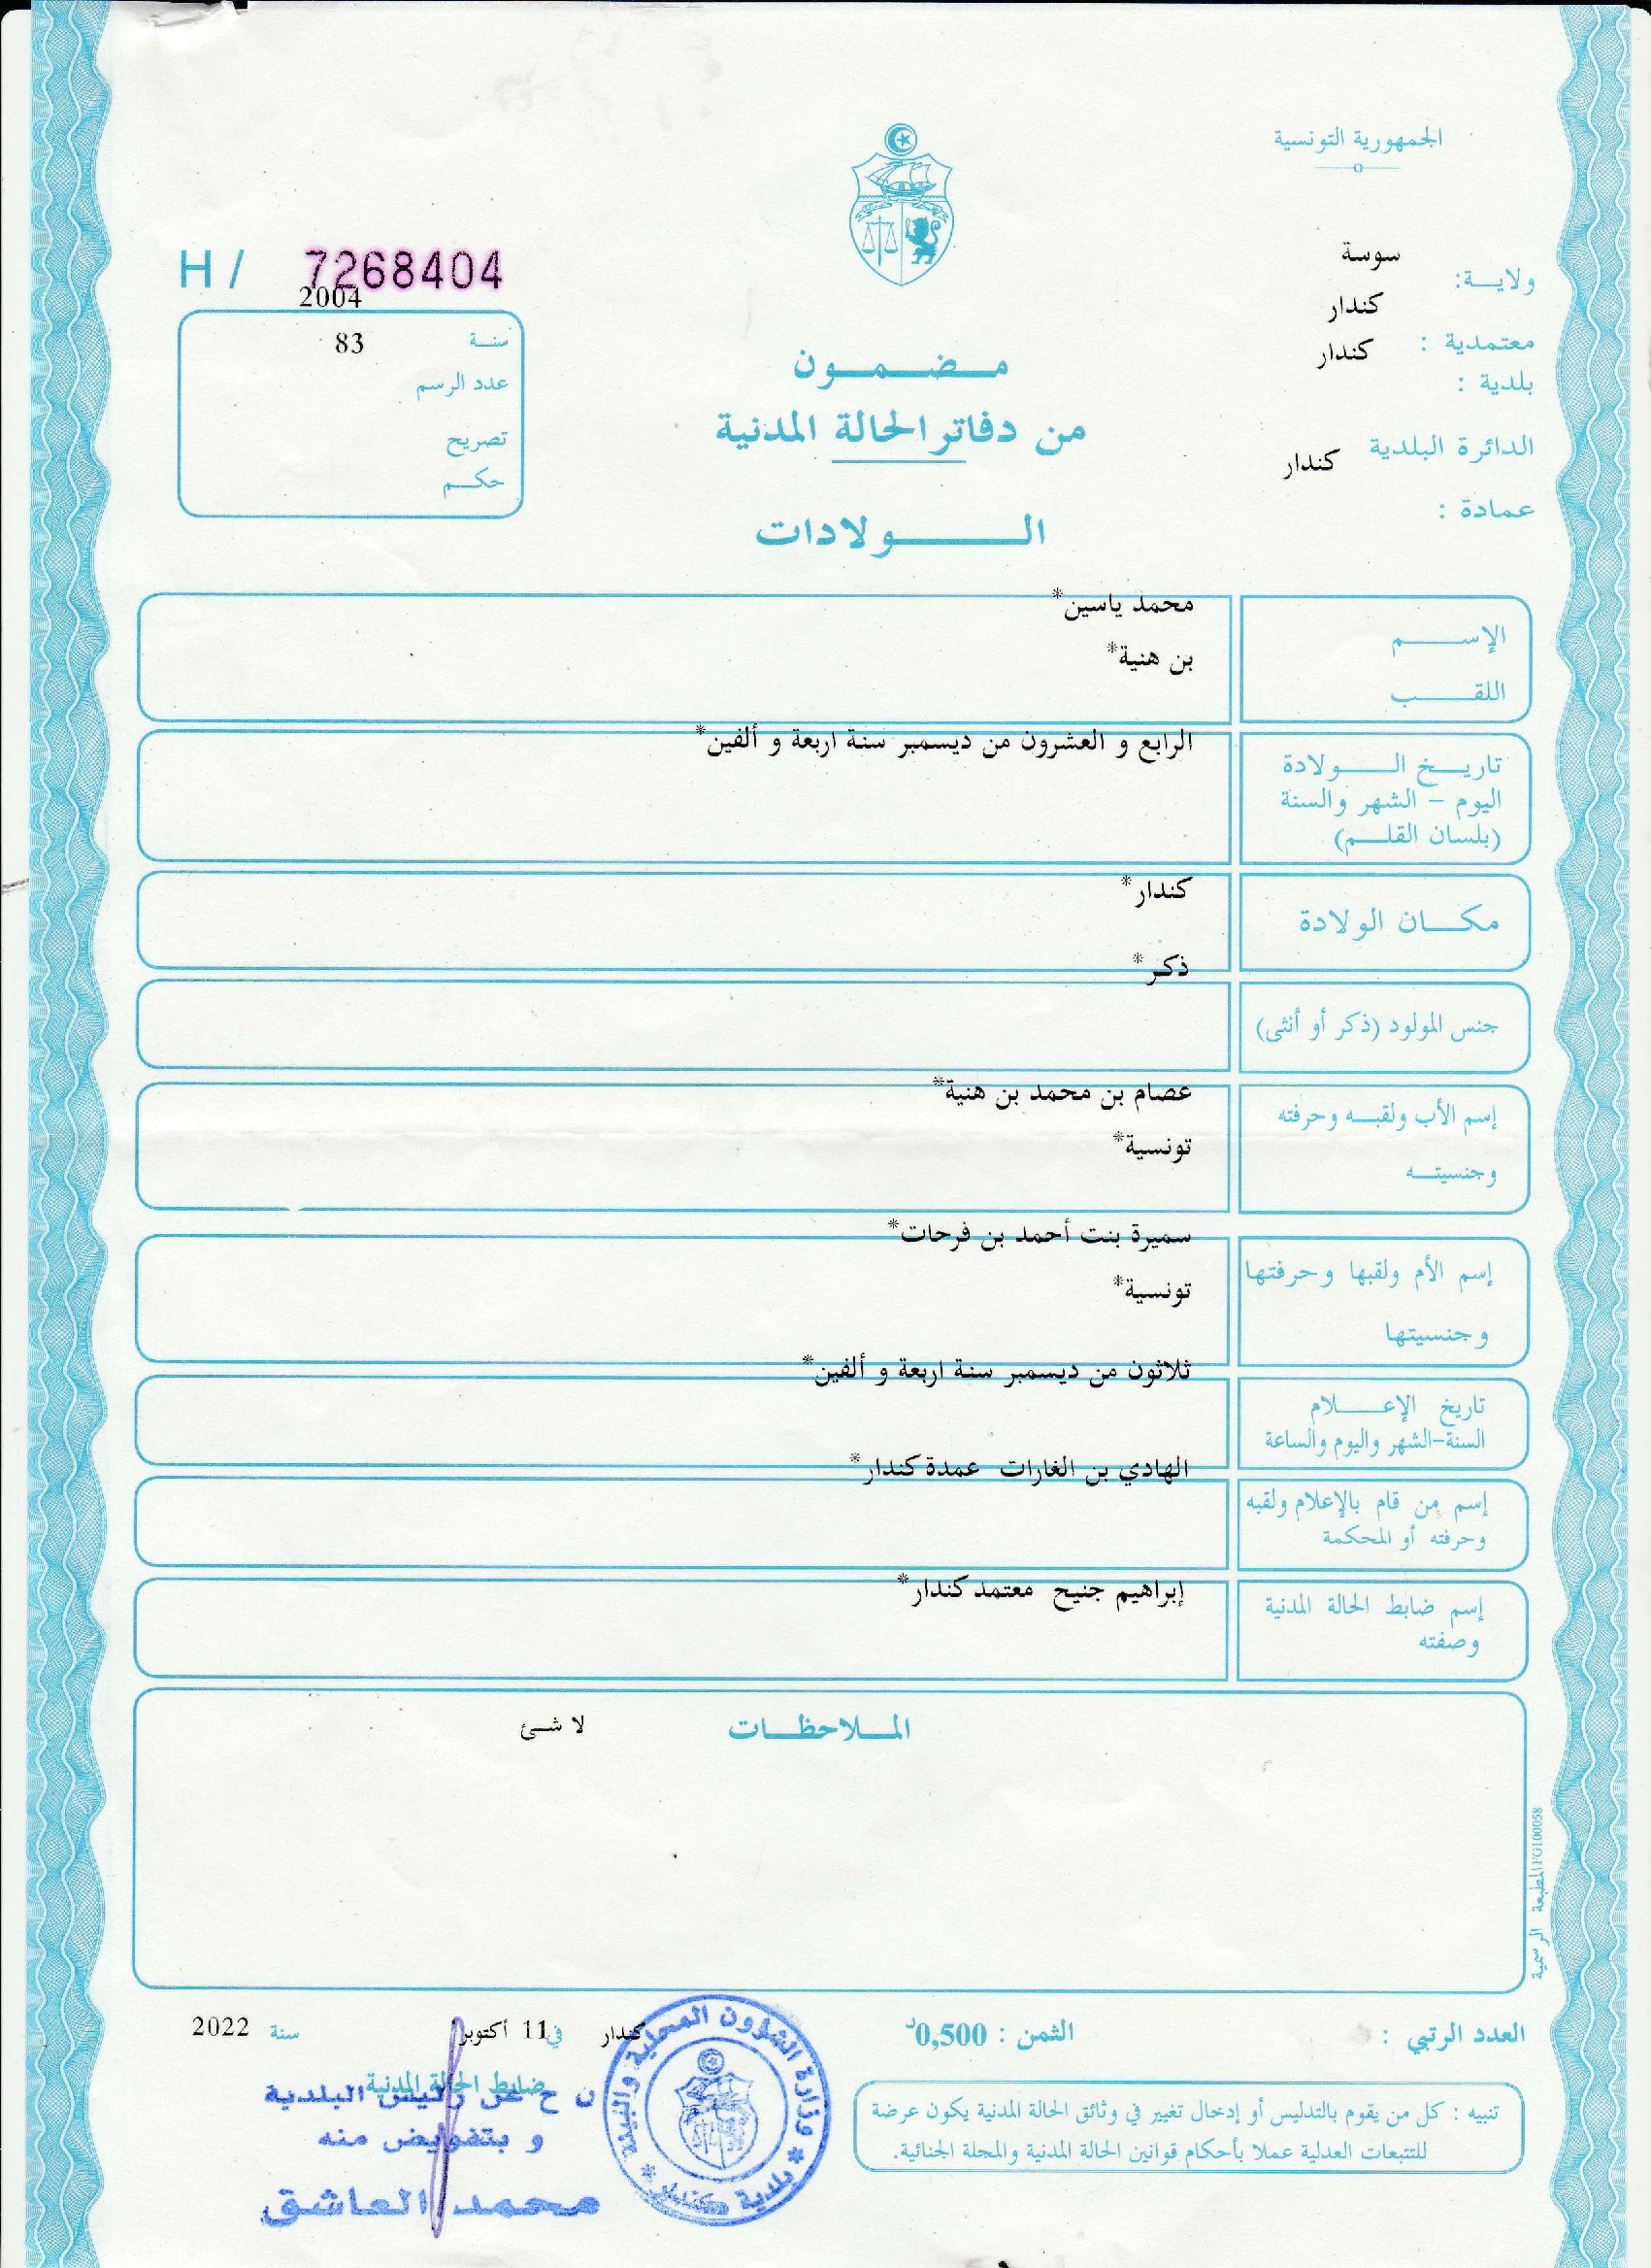 الجمهورية التونسية
H / 7268404
ولايــة: سوسة
معتمدية : كندار
بلدية : كندار
الدائرة البلدية كندار
عمادة :
سنــة 2004
عدد الرسم 83
تصريح
حكــم
مــضــمــون
من دفاتر الحالة المدنية
الــــولادات
الإســــم محمد ياسين*
اللقــــب بن هنية*
تاريــخ الــــولادة الرابع و العشرون من ديسمبر سنة اربعة و ألفين*
اليوم – الشهر والسنة
(بلسان القلــم)
مكــان الولادة كندار*
جنس المولود (ذكر أو أنثى) ذكر*
إسم الأب ولقبــه وحرفته عصام بن محمد بن هنية*
وجنسيتــه تونسية*
إسم الأم ولقبها وحرفتها سميرة بنت أحمد بن فرحات*
وجنسيتها تونسية*
تاريخ الإعــــلام ثلاثون من ديسمبر سنة اربعة و ألفين*
السنة-الشهر واليوم والساعة
إسم من قام بالإعلام ولقبه الهادي بن الغارات عمدة كندار*
وحرفته أو المحكمة
إسم ضابط الحالة المدنية إبراهيم جنيح معتمد كندار*
وصفته
المــلاحظــات لا شئ
المطبعة الرسمية FG100058
العدد الرتبي :
الثمن : 0,500د
كندار في 11 أكتوبر سنة 2022
ضابط الحالة المدنية
ن ح عن رئيس البلدية
و بتفويض منه
محمد العاشق
وزارة الشؤون المحلية والبيئة * بلدية كندار *
تنبيه : كل من يقوم بالتدليس أو إدخال تغيير في وثائق الحالة المدنية يكون عرضة
للتتبعات العدلية عملا بأحكام قوانين الحالة المدنية والمجلة الجنائية.